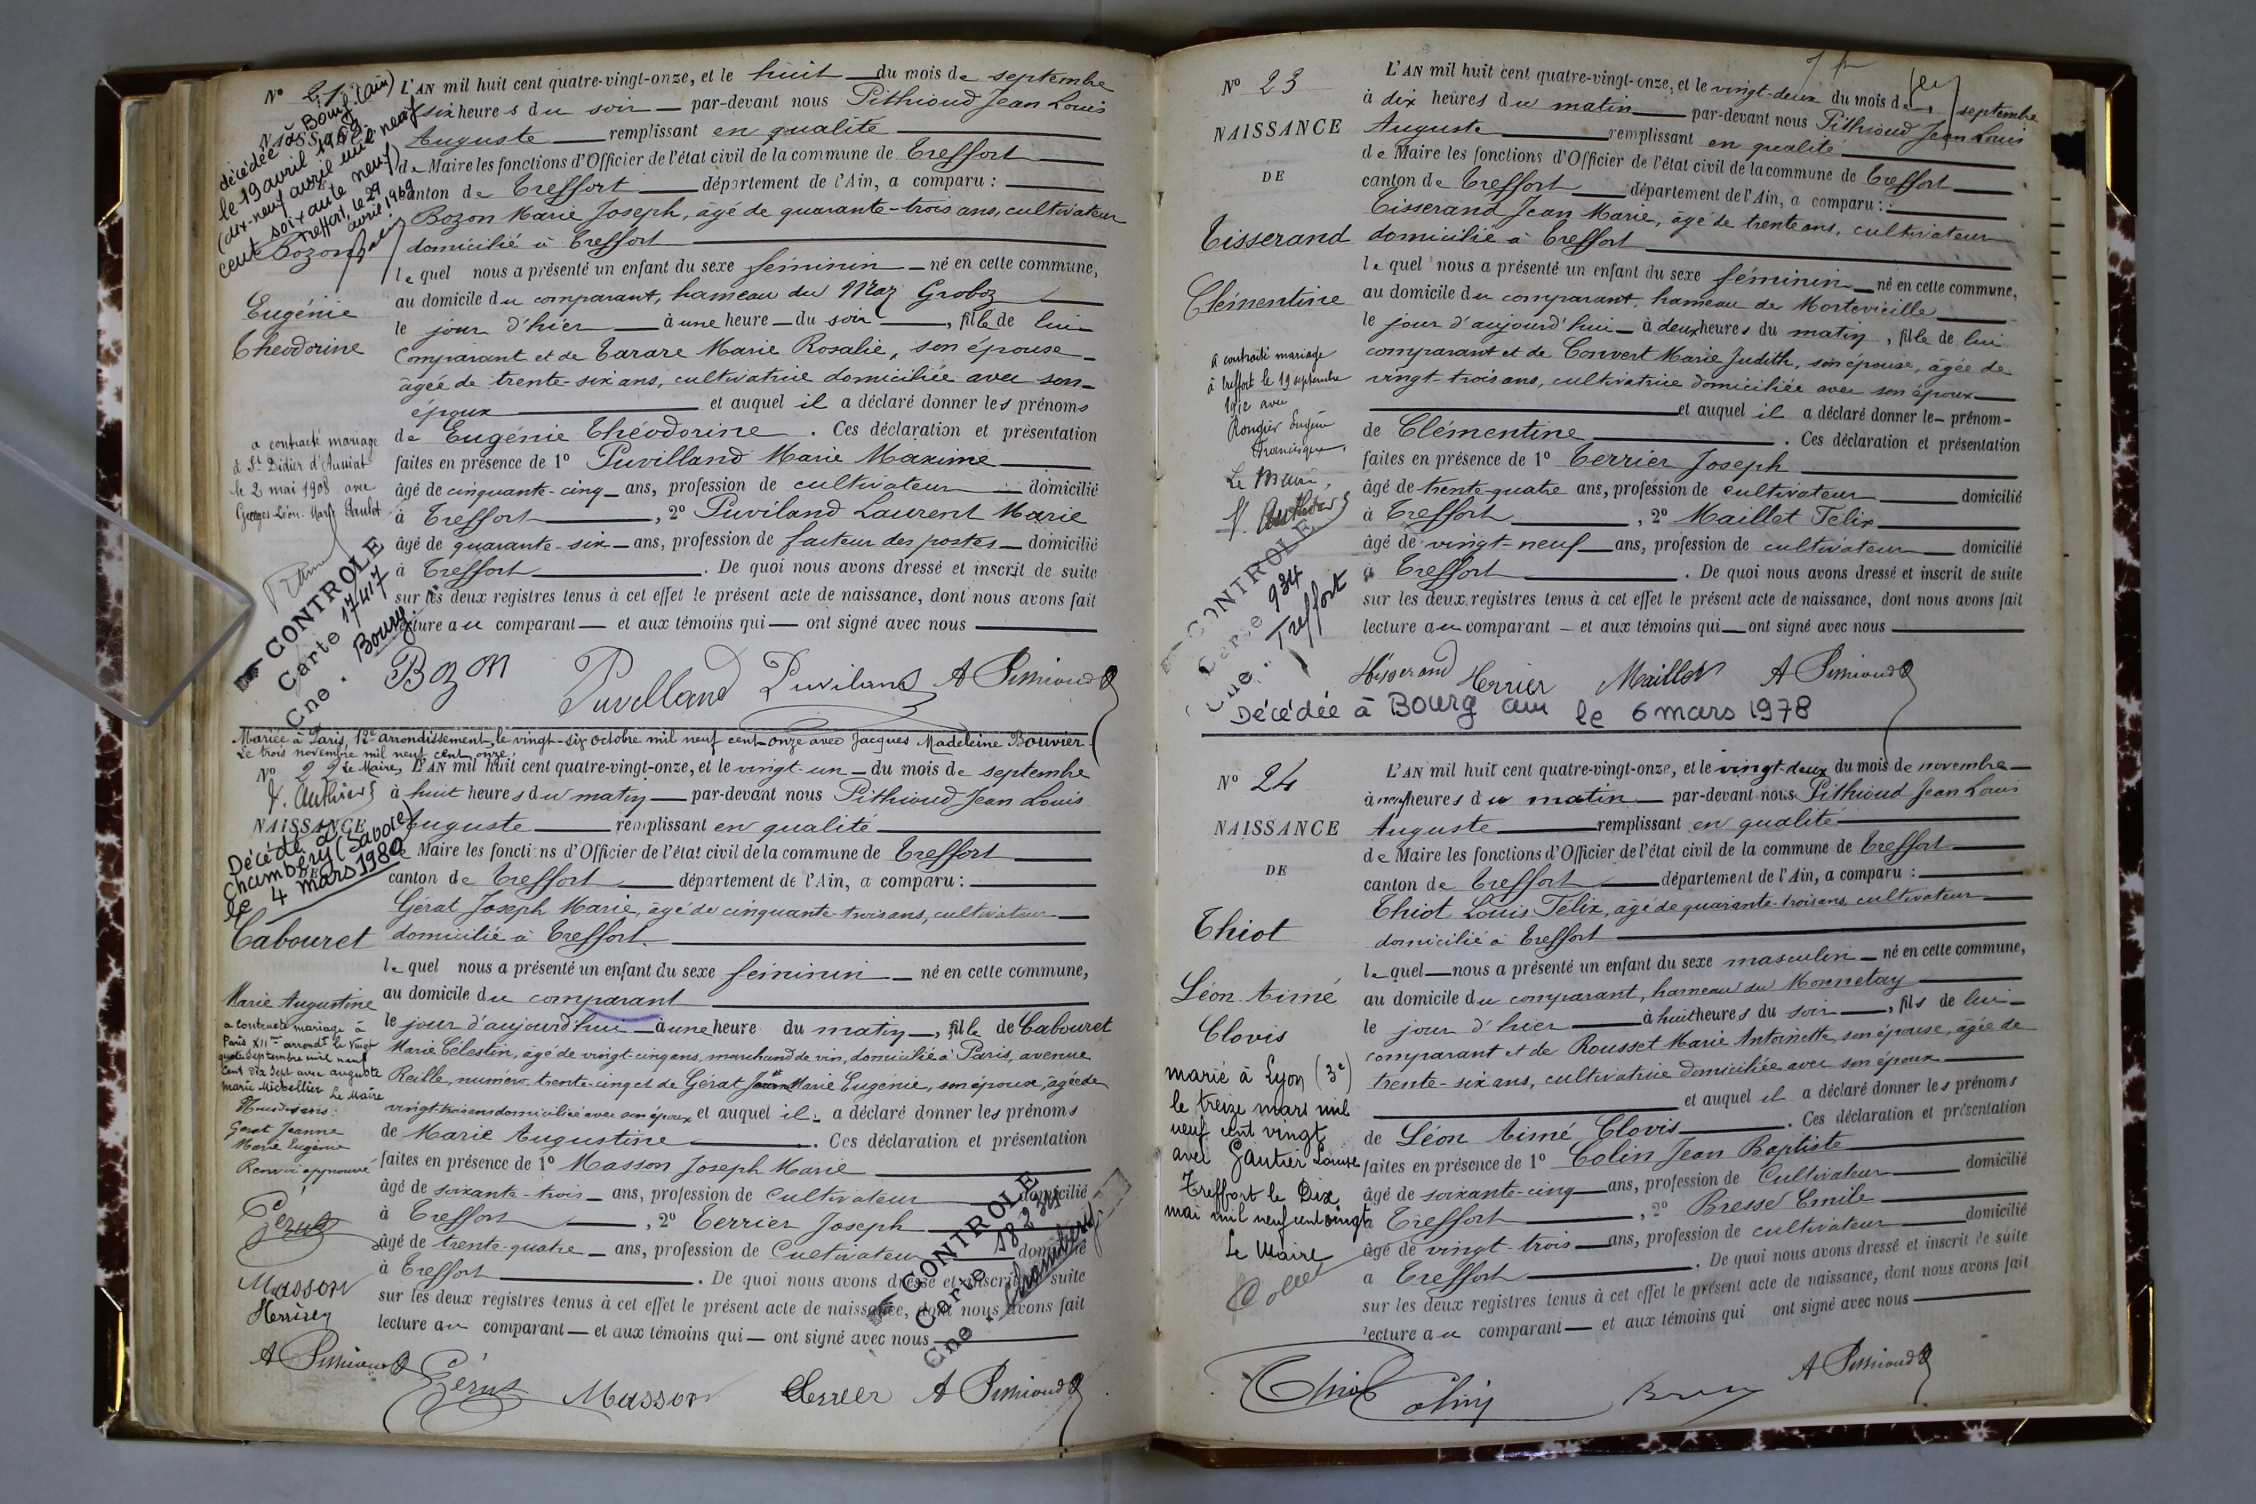 N° 21
L'AN mil huit cent quatre-vingt-onze, et le huit du mois de septembre
à six heures du soir par-devant nous Pithioud Jean Louis
Auguste remplissant en qualité
de Maire les fonctions d'Officier de l'état civil de la commune de Treffort
canton de Treffort département de l'Ain, a comparu :
Bozon Marie Joseph, âgé de quarante-trois ans, cultivateur
domicilié à Treffort
lequel nous a présenté un enfant du sexe féminin né en cette commune,
au domicile du comparant, hameau du Maz Groboz
le jour d'hier à une heure du soir, fille de lui
comparant et de Tarare Marie Rosalie, son épouse
âgée de trente-six ans, cultivatrice domiciliée avec son
époux et auquel il a déclaré donner les prénoms
de Eugénie Théodorine. Ces déclaration et présentation
faites en présence de 1° Puvilland Marie Maxime
âgé de cinquante-cinq ans, profession de cultivateur domicilié
à Treffort, 2° Puviland Laurent Marie
âgé de quarante-six ans, profession de facteur des postes domicilié
à Treffort. De quoi nous avons dressé et inscrit de suite
sur les deux registres tenus à cet effet le présent acte de naissance, dont nous avons fait
lecture au comparant et aux témoins qui ont signé avec nous
Bozon Puvilland Puviland A Pithioud
décédée à Bourg (Ain)
le 19 avril 1969
(dix-neuf avril mil neuf
cent soixante neuf)
Treffort, le 29
avril 1969
Bozon
Eugénie
Théodorine
a contracté mariage
à St Didier d'Aussiat
le 2 mai 1908 avec
Georges Léon Marie Paulet
CONTROLE
Carte 17417
Cne. Bourg
Mariée à Paris, 12e arrondissement, le vingt-six octobre mil neuf cent onze avec Jacques Madeleine Bouvier
Le trois novembre mil neuf cent onze.
Le Maire,
N° 22
L'AN mil huit cent quatre-vingt-onze, et le vingt-un du mois de septembre
à huit heures du matin par-devant nous Pithioud Jean Louis
Auguste remplissant en qualité
de Maire les fonctions d'Officier de l'état civil de la commune de Treffort
canton de Treffort département de l'Ain, a comparu :
Gérat Joseph Marie, âgé de cinquante-trois ans, cultivateur
domicilié à Treffort
lequel nous a présenté un enfant du sexe féminin né en cette commune,
au domicile du comparant
le jour d'aujourd'hui à une heure du matin, fille de Cabouret
Marie Célestin, âgé de vingt-cinq ans, marchand de vin, domicilié à Paris, avenue
Reille, numéro trente-cinq et de Gérat Jeanne Marie Eugénie, son épouse, âgée de
vingt-trois ans domiciliée avec son époux et auquel il a déclaré donner les prénoms
de Marie Augustine. Ces déclaration et présentation
faites en présence de 1° Masson Joseph Marie
âgé de soixante-trois ans, profession de cultivateur domicilié
à Treffort, 2° Terrier Joseph
âgé de trente-quatre ans, profession de cultivateur domicilié
à Treffort. De quoi nous avons dressé et inscrit de suite
sur les deux registres tenus à cet effet le présent acte de naissance, dont nous avons fait
lecture au comparant et aux témoins qui ont signé avec nous
Masson Terrier A Pithioud
NAISSANCE
DE
Décédé à
Chambéry (Savoie)
le 4 mars 1980
Cabouret
Marie Augustine
a contracté mariage à
Paris XIIme arrondt le vingt
quatre Septembre mil neuf
cent dix sept avec auguste
marie Michellier Le Maire
Gerat Jeanne
Marie Eugénie
Renvoi approuvé
Masson
A Pithioud
CONTROLE
Carte 18234
Cne. Chambéry
N° 23
NAISSANCE
DE
Tisserand
Clémentine
a contracté mariage
à Treffort le 19 septembre
1912 avec
Rougier Eugène
Francisque.
Le Maire,
CONTROLE
Carte 934
Cne. Treffort
L'AN mil huit cent quatre-vingt-onze, et le vingt-deux du mois de septembre
à dix heures du matin par-devant nous Pithioud Jean Louis
Auguste remplissant en qualité
de Maire les fonctions d'Officier de l'état civil de la commune de Treffort
canton de Treffort département de l'Ain, a comparu :
Tisserand Jean Marie, âgé de trente ans, cultivateur
domicilié à Treffort
lequel nous a présenté un enfant du sexe féminin né en cette commune,
au domicile du comparant, hameau de Mortevieille
le jour d'aujourd'hui à deux heures du matin, fille de lui
comparant et de Convert Marie Judith, son épouse, âgée de
vingt-trois ans, cultivatrice domiciliée avec son époux
et auquel il a déclaré donner le prénom
de Clémentine. Ces déclaration et présentation
faites en présence de 1° Terrier Joseph
âgé de trente-quatre ans, profession de cultivateur domicilié
à Treffort, 2° Maillet Félix
âgé de vingt-neuf ans, profession de cultivateur domicilié
à Treffort. De quoi nous avons dressé et inscrit de suite
sur les deux registres tenus à cet effet le présent acte de naissance, dont nous avons fait
lecture au comparant et aux témoins qui ont signé avec nous
Tisserand Terrier Maillet A Pithioud
Décédée à Bourg ain le 6 mars 1978
N° 24
NAISSANCE
DE
Thiot
Léon Aimé
Clovis
marié à Lyon (3e)
le treize mars mil
neuf cent vingt
avec Gautier Louise
Treffort le Dix
mai mil neuf cent vingt
Le Maire
L'AN mil huit cent quatre-vingt-onze, et le vingt-deux du mois de novembre
à neuf heures du matin par-devant nous Pithioud Jean Louis
Auguste remplissant en qualité
de Maire les fonctions d'Officier de l'état civil de la commune de Treffort
canton de Treffort département de l'Ain, a comparu :
Thiot Louis Félix, âgé de quarante-trois ans, cultivateur
domicilié à Treffort
lequel nous a présenté un enfant du sexe masculin né en cette commune,
au domicile du comparant, hameau du Monnetay
le jour d'hier à huit heures du soir, fils de lui
comparant et de Rousset Marie Antoinette, son épouse, âgée de
trente-six ans, cultivatrice domiciliée avec son époux
et auquel il a déclaré donner les prénoms
de Léon Aimé Clovis. Ces déclaration et présentation
faites en présence de 1° Colin Jean Baptiste
âgé de soixante-cinq ans, profession de cultivateur domicilié
à Treffort, 2° Bresse Emile
âgé de vingt-trois ans, profession de cultivateur domicilié
à Treffort. De quoi nous avons dressé et inscrit de suite
sur les deux registres tenus à cet effet le présent acte de naissance, dont nous avons fait
lecture au comparant et aux témoins qui ont signé avec nous
Thiot Colin A Pithioud